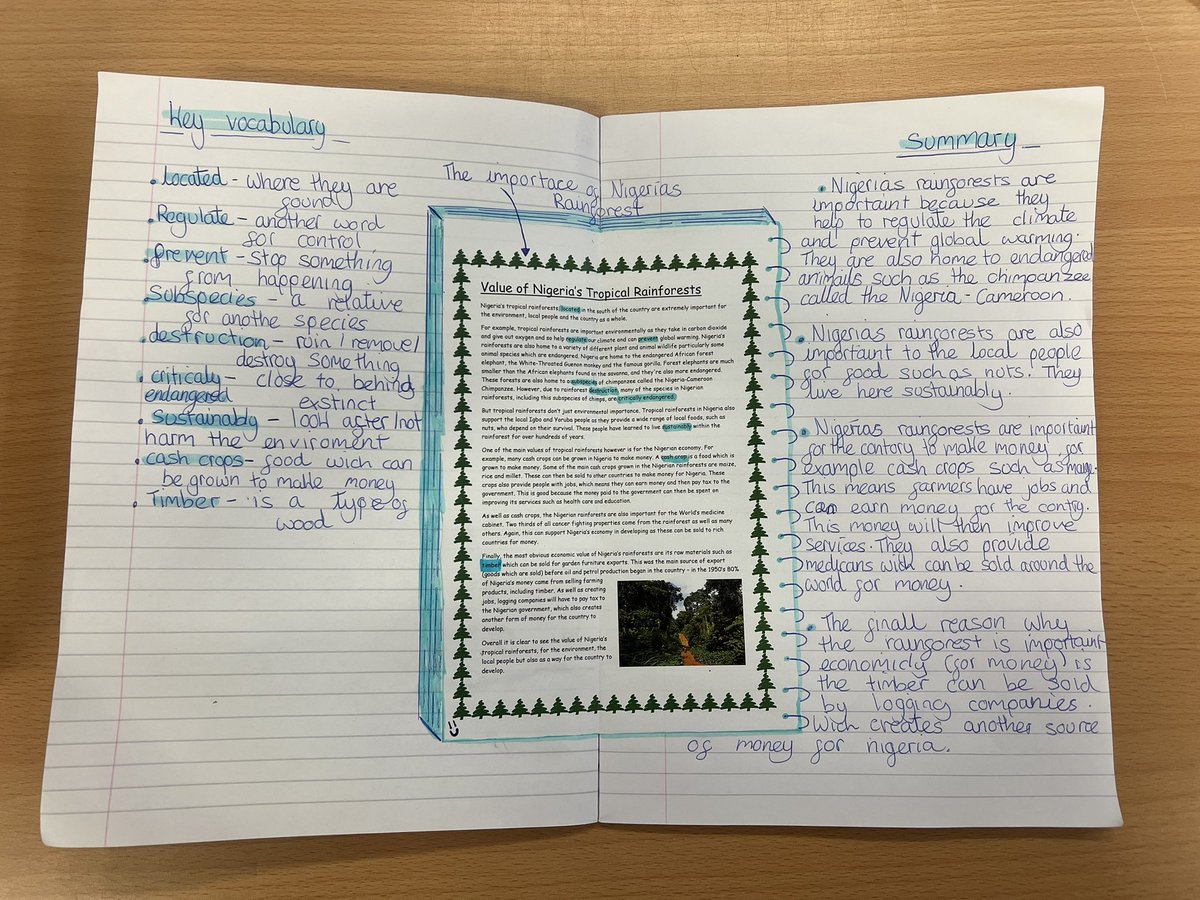 Key vocabulary
• located - where they are
found
• Regulate - another word
for control
• prevent - stop something
from happening
• Subspecies - a relative
for anothe species
• destruction - ruin / remove /
destroy something
• criticaly - close to, behing
endangered exstinct
• Sustainably - look after / not
harm the enviroment
• cash crops - food wich can
be grown to make money
• Timber - is a type of
wood
The importace of Nigerias
Rainforest
Value of Nigeria's Tropical Rainforests
Nigeria's tropical rainforests located in the south of the country are extremely important for
the environment, local people and the country as a whole.
For example, tropical rainforests are important environmentally as they take in carbon dioxide
and give out oxygen and so help regulate our climate and can prevent global warming. Nigeria's
rainforests are also home to a variety of different plant and animal wildlife particularly some
animal species which are endangered. Nigeria are home to the endangered African forest
elephant, the White-Throated Guenon monkey and the famous gorilla. Forest elephants are much
smaller than the African elephants found in the savanna, and they're also more endangered.
These forests are also home to a subspecies of chimpanzee called the Nigeria-Cameroon
Chimpanzee. However, due to rainforest destruction, many of the species in Nigerian
rainforests, including this subspecies of chimps, are critically endangered.
But tropical rainforests don't just environmental importance. Tropical rainforests in Nigeria also
support the local Igbo and Yoruba people as they provide a wide range of local foods, such as
nuts, who depend on their survival. These people have learned to live sustainably within the
rainforest for over hundreds of years.
One of the main values of tropical rainforests however is for the Nigerian economy. For
example, many cash crops can be grown in Nigeria to make money. A cash crop is a food which is
grown to make money. Some of the main cash crops grown in the Nigerian rainforests are maize,
rice and millet. These can then be sold to other countries to make money for Nigeria. These
crops also provide people with jobs, which means they can earn money and then pay tax to the
government. This is good because the money paid to the government can then be spent on
improving its services such as health care and education.
As well as cash crops, the Nigerian rainforests are also important for the World's medicine
cabinet. Two thirds of all cancer fighting properties come from the rainforest as well as many
others. Again, this can support Nigeria's economy in developing as these can be sold to rich
countries for money.
Finally, the most obvious economic value of Nigeria's rainforests are its raw materials such as
timber which can be sold for garden furniture exports. This was the main source of export
(goods which are sold) before oil and petrol production began in the country – in the 1950's 80%
of Nigeria's money came from selling farming
products, including timber. As well as creating
jobs, logging companies will have to pay tax to
the Nigerian government, which also creates
another form of money for the country to
develop.
Overall it is clear to see the value of Nigeria's
tropical rainforests, for the environment, the
local people but also as a way for the country to
develop.
Summary
• Nigerias rainforests are
important because they
help to regulate the climate
and prevent global warming.
They are also home to endangered
animails such as the chimpanzee
called the Nigeria - Cameroon.
• Nigerias rainforests are also
important to the local people
for food such as nuts. They
live here sustainably.
• Nigerias rainforests are important
for the contory to make money for
example cash crops such as
This means farmers have jobs and
can earn money for the
This money will then improve
services. They also provide
medicans wich can be sold around the
world for money.
• The finall reason why
the rainforest is important
economicly (for money) is
the timber can be sold
by logging companies.
Wich creates another source
of money for nigeria.